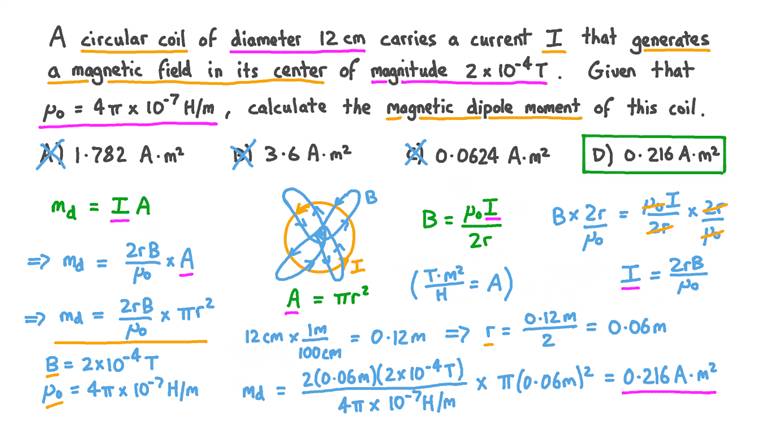 A circular coil of diameter 12 cm carries a current I that generates
a magnetic field in its center of magnitude 2 × 10⁻⁴ T. Given that
μ₀ = 4π × 10⁻⁷ H/m, calculate the magnetic dipole moment of this coil.
A) 1.782 A·m² B) 3.6 A·m² C) 0.0624 A·m² D) 0.216 A·m²
m_d = I A
⇒ m_d = 2rB/μ₀ × A
⇒ m_d = 2rB/μ₀ × πr²
B = 2×10⁻⁴ T
μ₀ = 4π × 10⁻⁷ H/m
B
I
A = πr²
B = μ₀I/2r
(T·m²/H = A)
B × 2r/μ₀ = μ₀I/2r × 2r/μ₀
I = 2rB/μ₀
12cm × 1m/100cm = 0.12m ⇒ r = 0.12m/2 = 0.06m
m_d = 2(0.06m)(2×10⁻⁴T)/4π × 10⁻⁷ H/m × π(0.06m)² = 0.216 A·m²